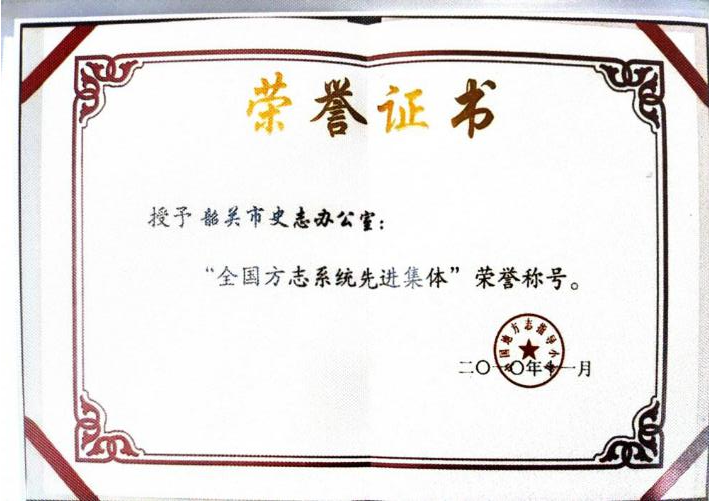 荣誉证书
授予 韶关市史志办公室：
“全国方志系统先进集体”荣誉称号。
国地方志指导小
二〇一〇年十一月